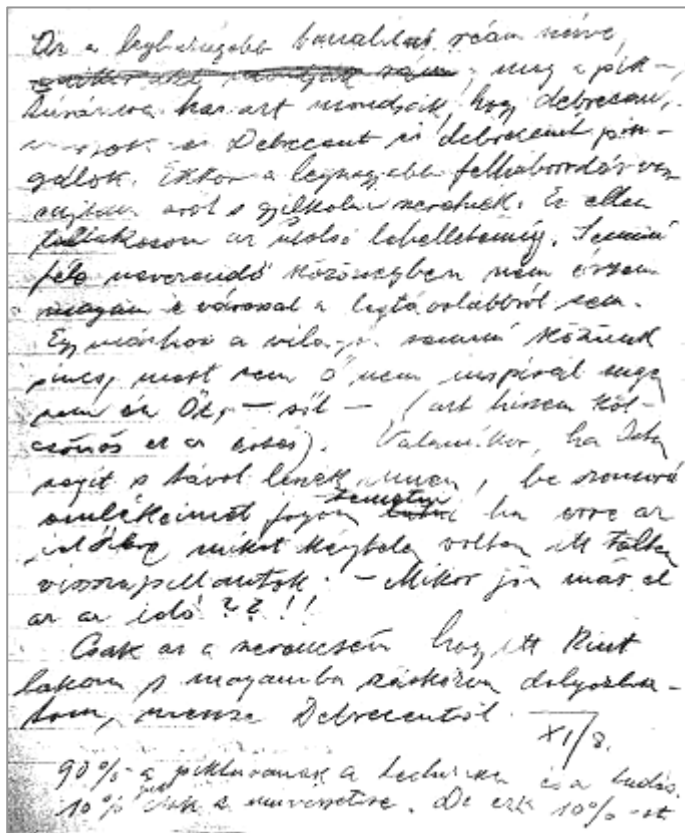 Az a legharagosabb banalitás reám nézve,
meg a pik-
túrámra ha azt mondják, hogy debreceni,
vagyok és Debrecent és debrecenit pin-
gálok. Ekkor a legnagyobb felháborodás vesz
erőt s gyilkolni szeretnék. Ez ellen
tiltakozom az utolsó lehelletemig. Semmi
féle nevezendő közösségben nem érzem
magam e várossal a legtávolabbról sem.
Egymáshoz a világon semmi közünk
nincs, mert sem ő nem inspirál engem
sem én Őt, — sőt — (azt hiszem köl-
csönös ez az érzés). Valamikor, ha Isten
segít s távol leszek innen, be szomorú
emlékeimet fogom temetni ha erre az
időkre mikor kénytelen voltam itt
visszapillantok. — Mikor jön már el
az az idő ??!!
Csak az a szerencsém hogy itt kint
lakom s magamba zárkózva dolgozha-
tom, messze Debrecentől. XI/8.
90%-a pikturának a technika és a tudás.
10% csak a művészetre. De ezek 10%-ot